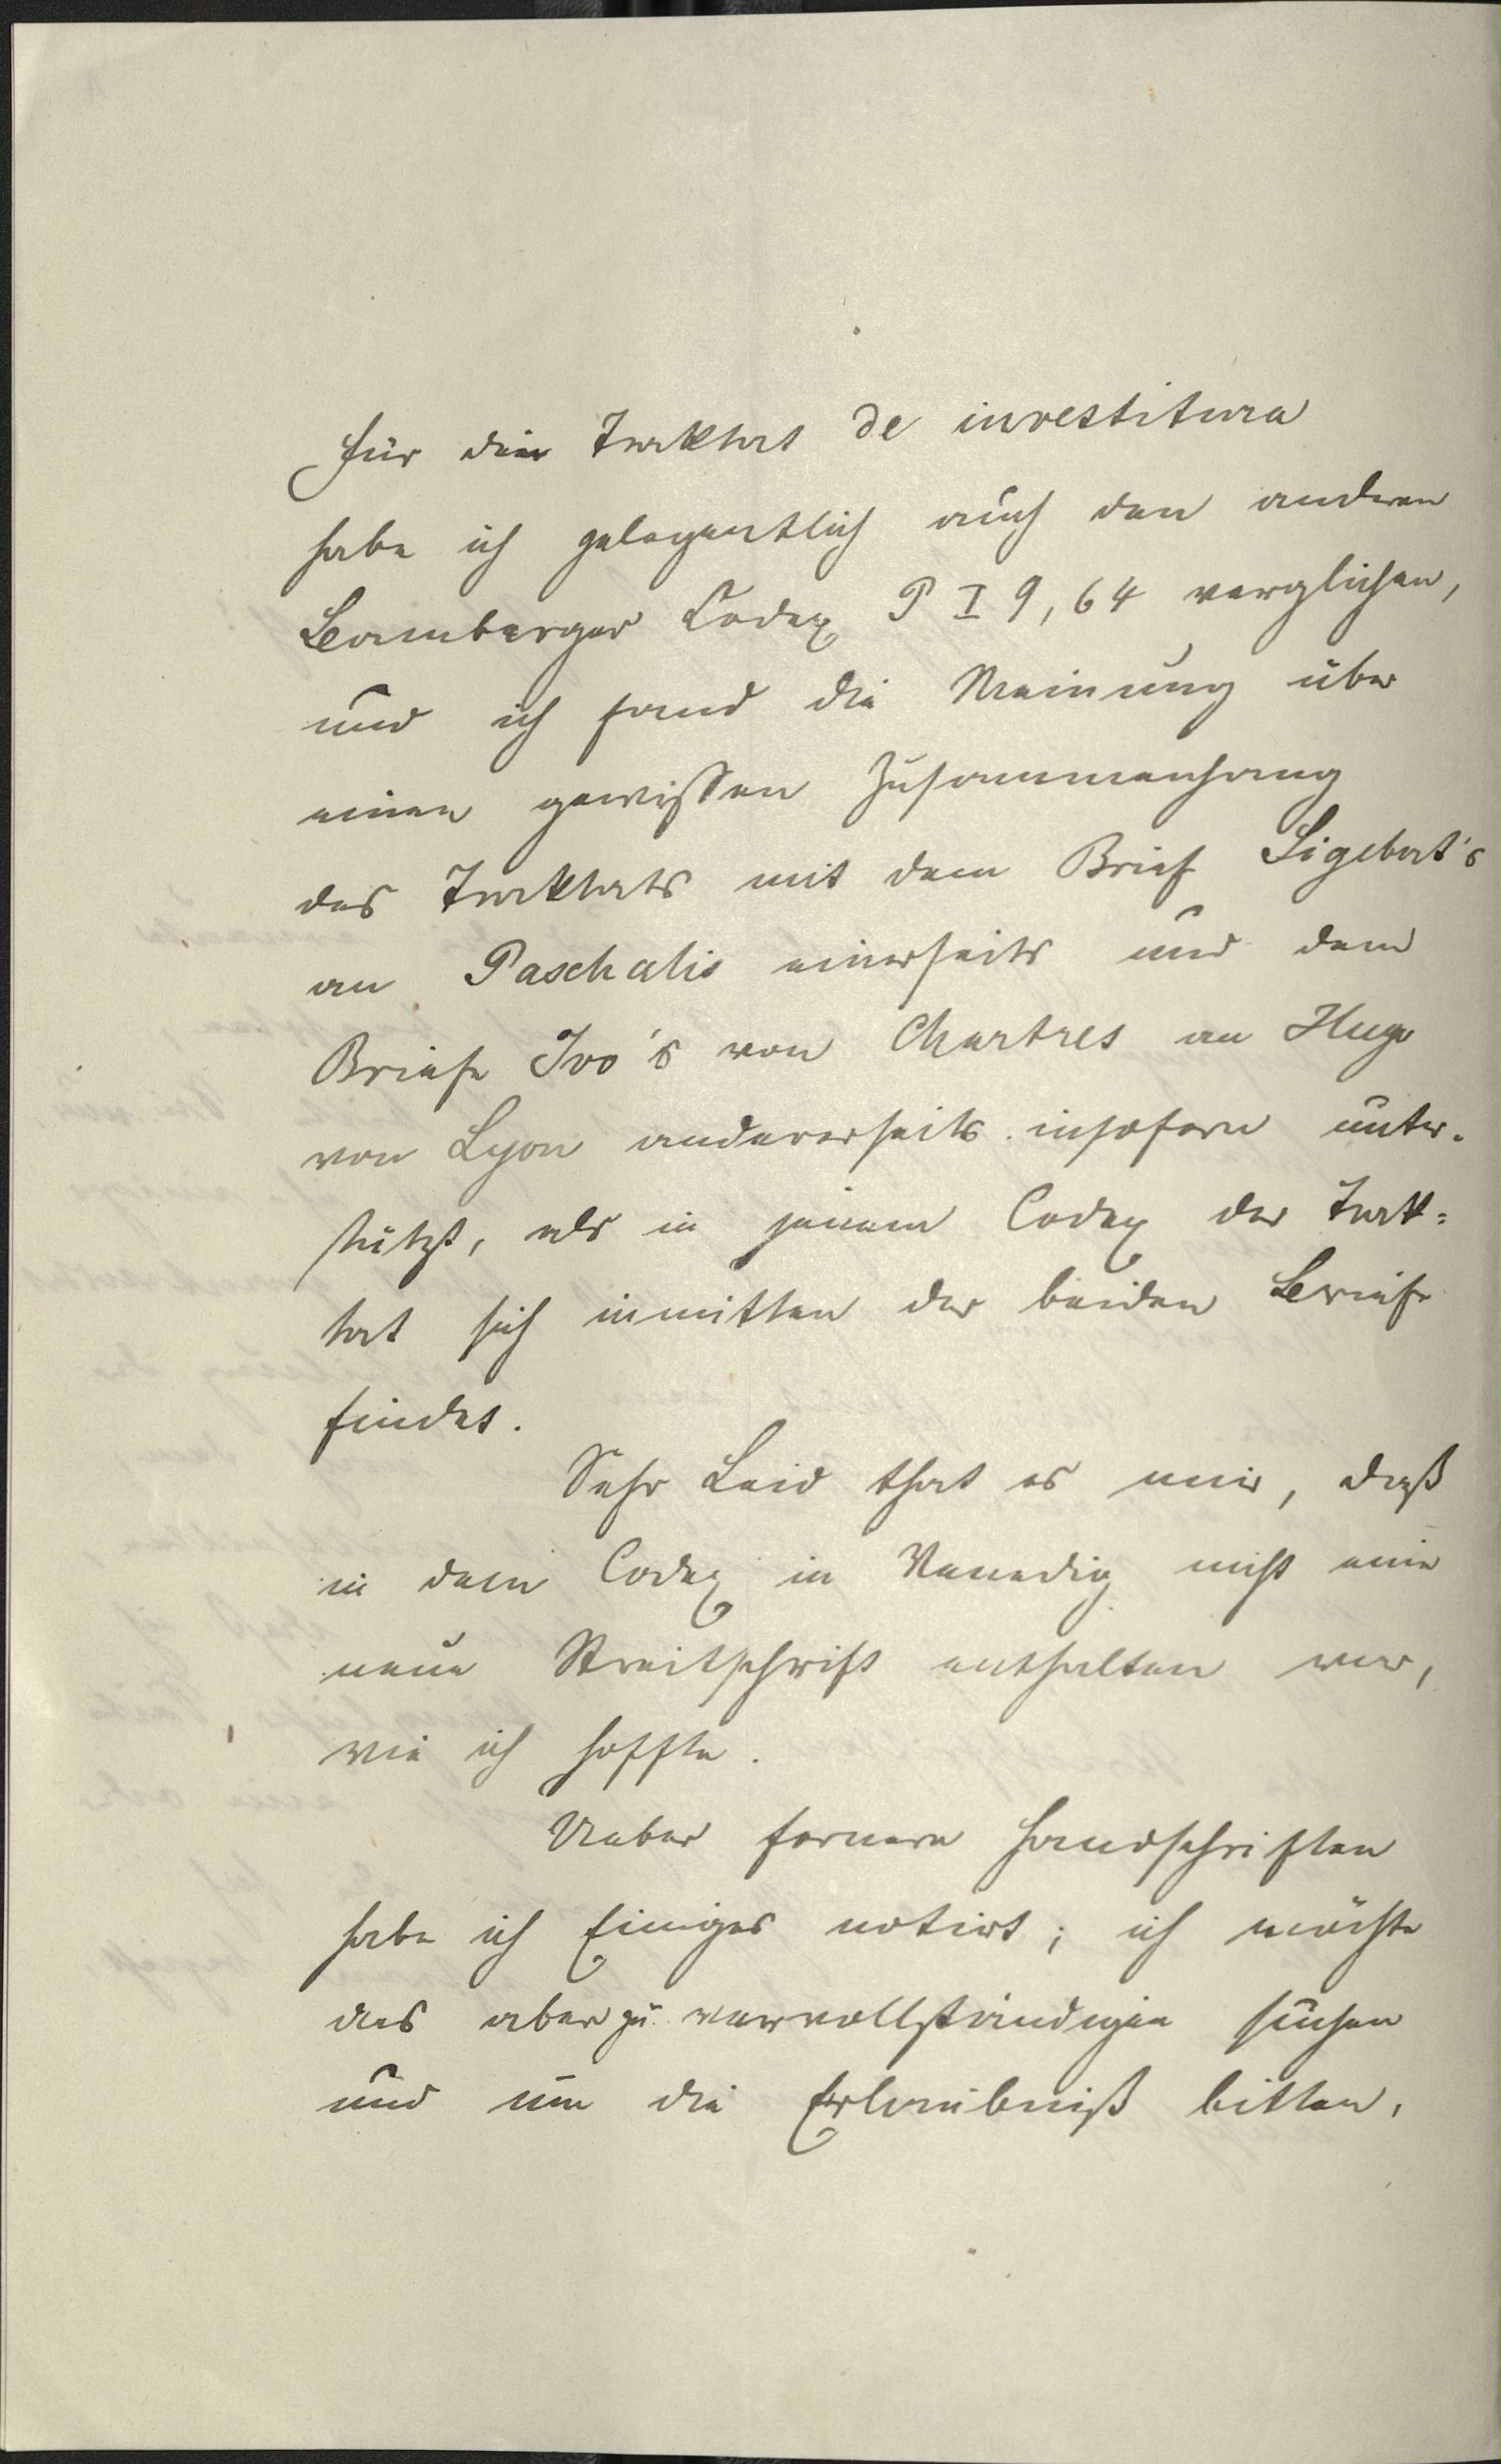 Für den Traktat de investitura
habe ich gelegentlich auch den anderen
Bamberger Codex P I 9, 64 verglichen,
und ich fand die Meinung über
einen gewissen Zusammenhang
des Traktats mit dem Brief Sigebert's
an Paschalis einerseits und dem
Briefe Ivo's von Chartres an Hugo
von Lyon andererseits insofern unter-
stützt, als in jenem Codex der Trak-
tat sich inmitten der beiden Briefe
findet.
Sehr Leid that es mir, daß
in dem Codex in Venedig nicht eine
neue Streitschrift enthalten war,
wie ich hoffte.
Ueber fernere Handschriften
habe ich Einiges notirt; ich möchte
das aber zu vervollständigen suchen
und um die Erlaubniß bitten,